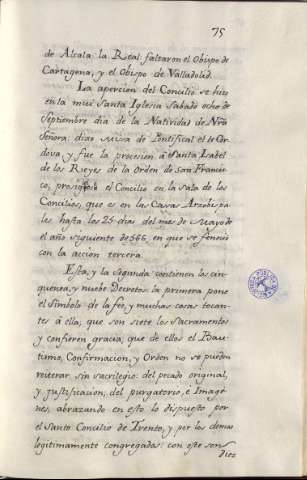 75
de Alcala la Real faltaron el Obispo de
Cartagena, y el Obispo de Valladolid.
La apercion del Concilio se hizo
en la mui Santa Iglesia Sabado ocho de
Septiembre dia de la Natividad de Nrã
Señora: dixo missa de Pontifical el de Cor-
dova, y fue la procesion á Santa Isabel
de los Reyes de la Orden de son Francis-
co, prosiguio el Concilio en la sala de los
Concilios, que es en las Casas Arzobispa-
les hasta los 25 dias del mes de Mayo de
el año siguiente de 566, en que se feneció
con la accion tercera.
Esta, y la Segunda contienen los cin-
quenta, y nuebe Decretos: la primera pone
el Simbolo de la fee, y muchas cosas tocan-
tes á ella; que son siete los Sacramentos
y confieren gracia; que de ellos el Bau-
tismo, Confirmacion, y Orden no se pueden
reiterar sin sacrilegio: del pecado original,
y justificacion, del purgatorio, é Imagé-
nes, abrazando en esto lo dispuesto por
el Santo Concilio de Trento, y por los demas
legitimamente congregados: con este son
diez